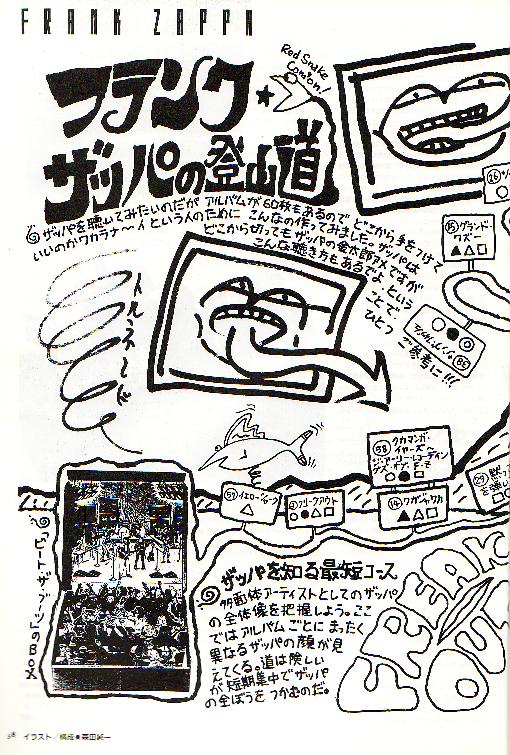 FRANK ZAPPA
フランク★
ザッパの登山道
Red Snake
Condon!
ザッパを聴いてみたいのだが アルバムが60枚もあるので どこから手をつけて
いいのかワカラナ〜イという人のために こんなの作ってみました。ザッパは
どこから切ってもザッパの金太郎アメですが
こんな聴き方もあるでよ という
ことで
ひとつ
ご参考に!!!
⑮グランド・
ワズー
▲△□
トルネード
58
クカマンガ・
イヤーズ
57 イエロー・シャーク
フリークアウト
⑭ワカジャワカ
▲△□
「ビート・ザ・ブーツ」のBOX
ザッパを知る最短コース
多面体アーティストとしてのザッパ
の全体像を把握しよう。ここ
ではアルバムごとにまったく
異なるザッパの顔が見
えてくる。道は険しい
が短期集中でザッパ
の全ぼうをつかむのだ。
FREAK
OUT
イラスト/構成●森田純一